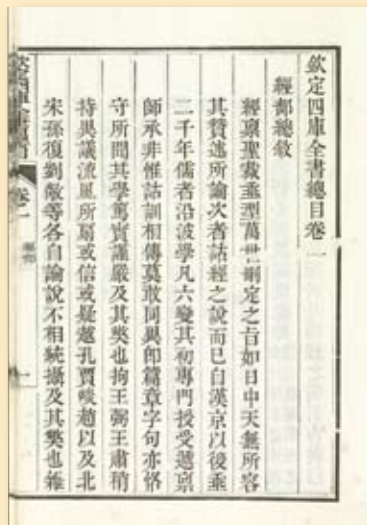 欽定四庫全書總目卷一
經部總敘
經稟聖裁垂型萬世刪定之旨如日中天無所容
其贊述所論次者詁經之說而已自漢京以後垂
二千年儒者沿波學凡六變其初專門授受遞稟
師承非惟詁訓相傳莫敢同異即篇章字句亦恪
守所聞其學篤實謹嚴及其弊也拘王弼王肅稍
持異議流風所扇或信或疑越孔賈啖趙以及北
宋孫復劉敞等各自論說不相統攝及其弊也雜
卷一
經部
一